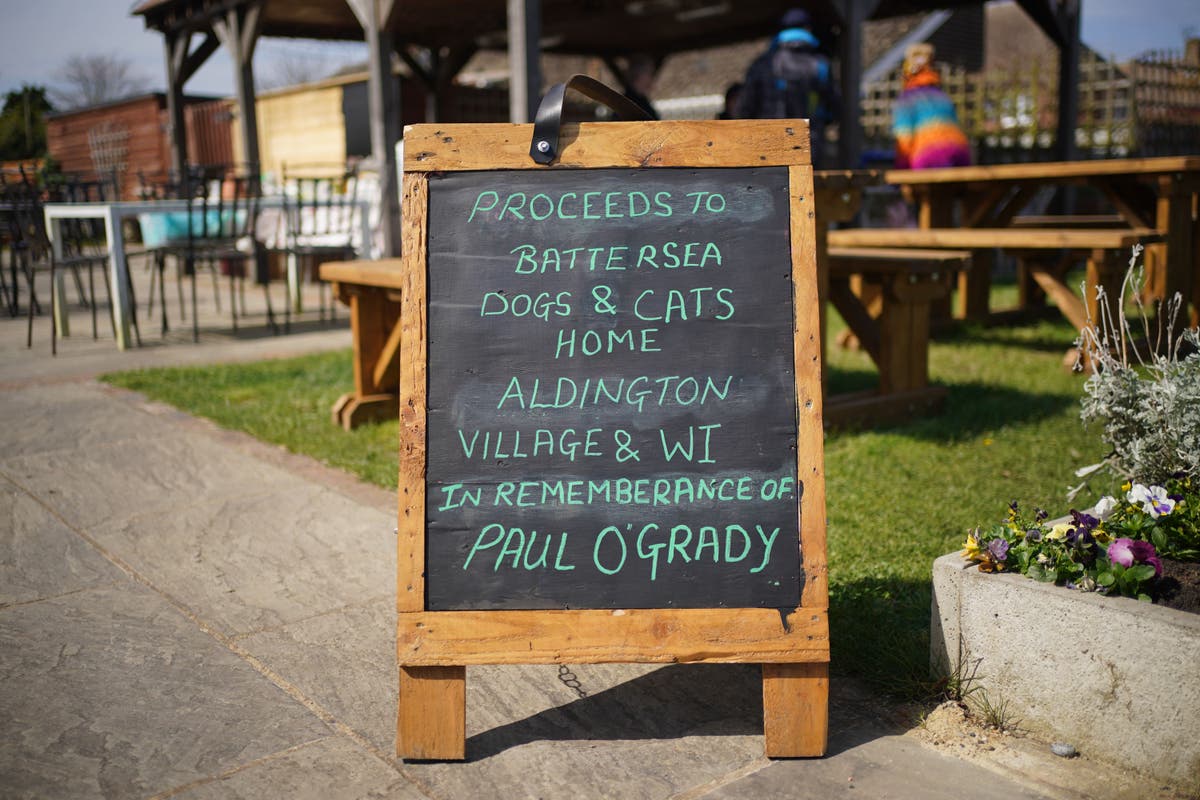 PROCEEDS TO
BATTERSEA
DOGS & CATS
HOME
ALDINGTON
VILLAGE & WI
IN REMEMBERANCE OF.
PAUL O"GRADY